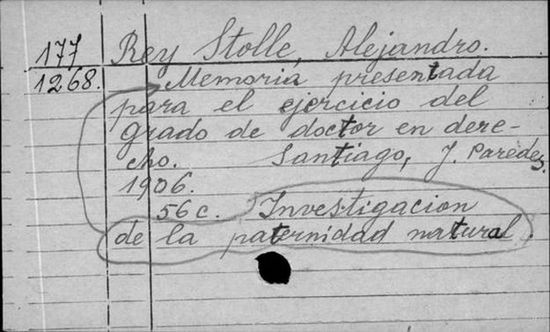 177 Rey Stolle, Alejandro.
1268. Memoria presentada
para el ejercicio del
grado de doctor en dere-
cho. Santiago, J. Paredez,
1906.
56 c. Investigacion
de la paternidad natural